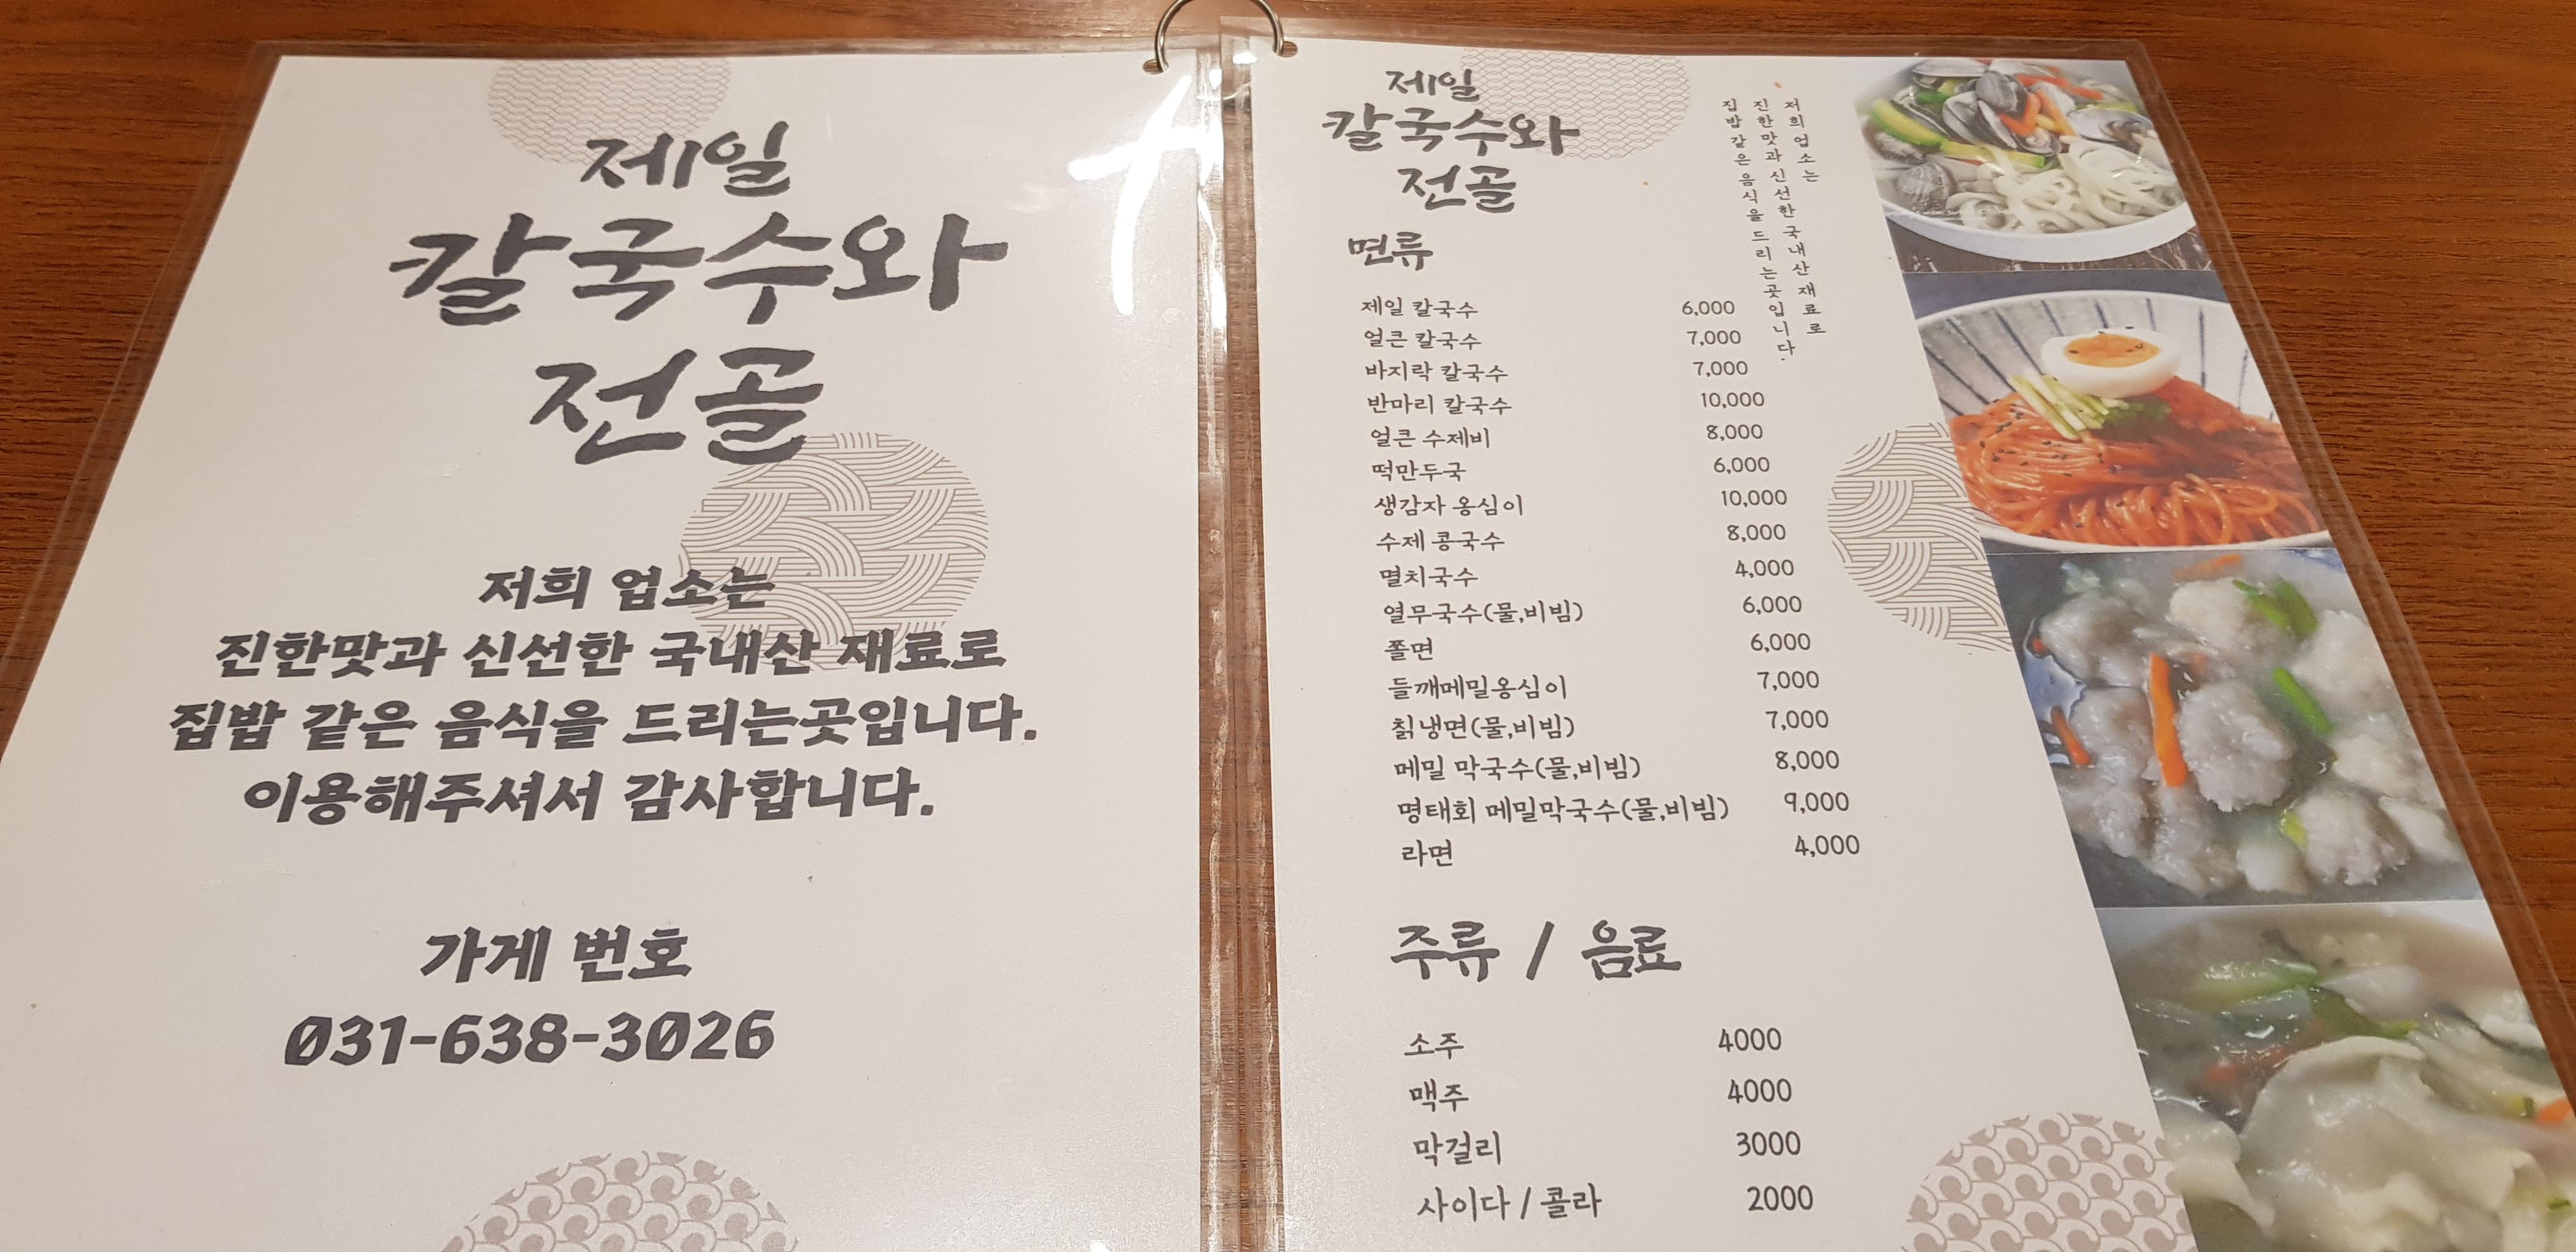 제일
칼국수와
전골
저희 업소는
진한맛과 신선한 국내산 재료로
집밥 같은 음식을 드리는곳입니다.
이용해주셔서 감사합니다.
가게 번호
031-638-3026
제일
칼국수와
전골
저희 업소는
진한맛과 신선한 국내산 재료로
집밥 같은 음식을 드리는곳입니다.
면류
제일 칼국수 6,000
얼큰 칼국수 7,000
바지락 칼국수 7,000
반마리 칼국수 10,000
얼큰 수제비 8,000
떡만두국 6,000
생감자 옹심이 10,000
수제 콩국수 8,000
멸치국수 4,000
열무국수(물,비빔) 6,000
쫄면 6,000
들깨메밀옹심이 7,000
칡냉면(물,비빔) 7,000
메밀 막국수(물,비빔) 8,000
명태회 메밀막국수(물,비빔) 9,000
라면 4,000
주류 / 음료
소주 4000
맥주 4000
막걸리 3000
사이다 / 콜라 2000